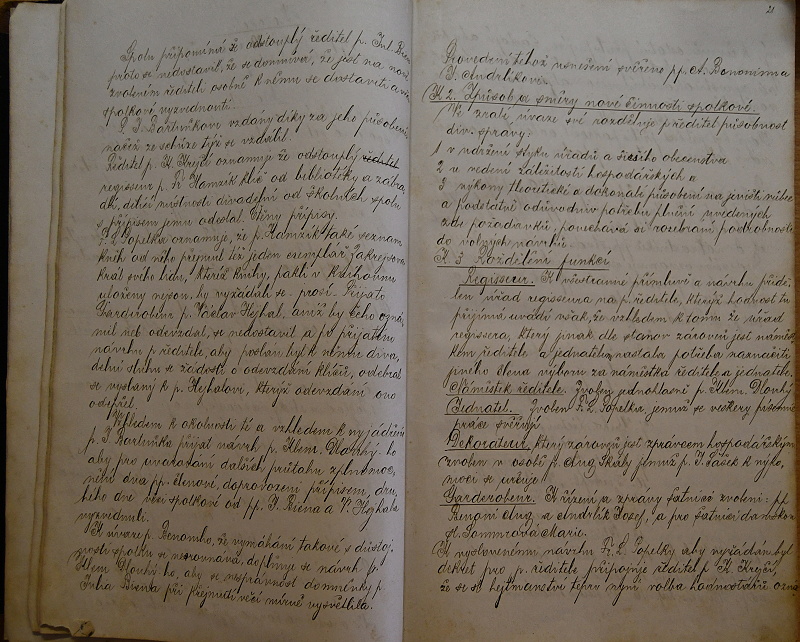 Spolu připomíná že odstouplý ředitel p. Jul. Biena
proto se nedostavil, že se domnívá, že jest na nově
zvoleném řediteli osobně k němu se dostaviti a
spolkové vyzvednouti.
P. J. Bartuňkovi vzdány díky za jeho působení
načež ze schůze týž se vzdálil.
Ředitel p. K. Krejčí oznamuje že odstouplý
regisseur p. Fr. Hamzík klíč od bibliotéky a záhra
dy, delicí místnosti divadelní od školních spolu
s přípisem jemu odeslal. Čteny přípisy.
P. L. Popelka oznamuje, že p. Hamzík také seznam
knih od něho převzal též jeden exemplář Jakrejsova
král svého lidu, kteréž knihy, pakli v knihovnu
uloženy nejsou, by vyžádal se prosí. Přijato
Garderobeur p. Václav Hejhal, aniž by čeho ozná,
mil neb odevzdal, se nedostavil a po přijatém
návrhu p. ředitele, aby poslán byl k němu diva,
delní sluha se žádostí o odevzdání klíčů, odebral
se vyslaný k p. Hejhalovi, kterýž odevzdání ono
odepřel.
Vzhledem k okolnosti té a vzhledem k vyjádření
p. J. Bartuňka přijat návrh p. Klem. Dlouhý ho
aby pro uvarování dalších průtahů zplnomoc,
něni dva pp. členové, doprovozeni přípisem, dru,
hého dne věci spolkové od pp. J. Biena a V. Hejhala
vyzvednuli.
K úvaze p. Benoniho, že vymáhání takové s důstoj,
ností spolku se nesrovnává, doplňuje se návrh p.
Klem Dlouhého, aby se nesprávnost domněnky p.
Julia Bienta při přejmutí věcí mírně vysvětlila.
21
Provedení téhož usnešení svěřeno pp. A. Bononimu a
J. Andrlíkovi.
K 2. Způsob a směry nové činnosti spolkové.
Po zralé úvaze své rozděluje p ředitel působnost
div. správy:
1 v udržení styku úřadů a širšího obecenstva
2 v vedení záležitostí hospodářských a
3 výkony theoretické a dokonalé působení na jevišti vůbec
a podstatně odůvodniv potřebu plnění uvedených
zde požadavků, ponechává si rozebrání podrobností
do volných návrhů.
K 3 Rozdělení funkcí
Regisseur. K všestranné přímluvě a návrhu přidě,
len úřad regisseura na p. ředitele, kterýž hodnost tu
přijímá uvádí však, že vzhledem k tomu že úřad
regisseura, který jinak dle stanov zároveň jest náměst,
kém ředitele a jednatele, nastala potřeba naznačiti
jiného člena výboru za náměstka ředitele a jednatele.
Náměstek ředitele. Zvolen jednohlasně p. Klem. Dlouhý
Jednatel. Zvolen F. L. Popelka jemuž se veškeré písemné
práce svěřují
Dekorateur, který zároveň jest zprávcem hospodářským
zvolen v osobě p. Aug Skály jemuž p. J. Pašek k výpo,
moci se určuje
Garderobeur. K řízení a zprávy šatnice zvoleni: pp.
Benoni Aug. a Andrlík Josef, a pro šatnici dámskou
sl. Sommrová Marie.
K vyslovenému návrhu F. L. Popelky aby vyžádán byl
dekret pro p. ředitele připojuje ředitel p K. Krejčí,
že se sl hejtmanství teprv nyní volba hodnostářů ozná